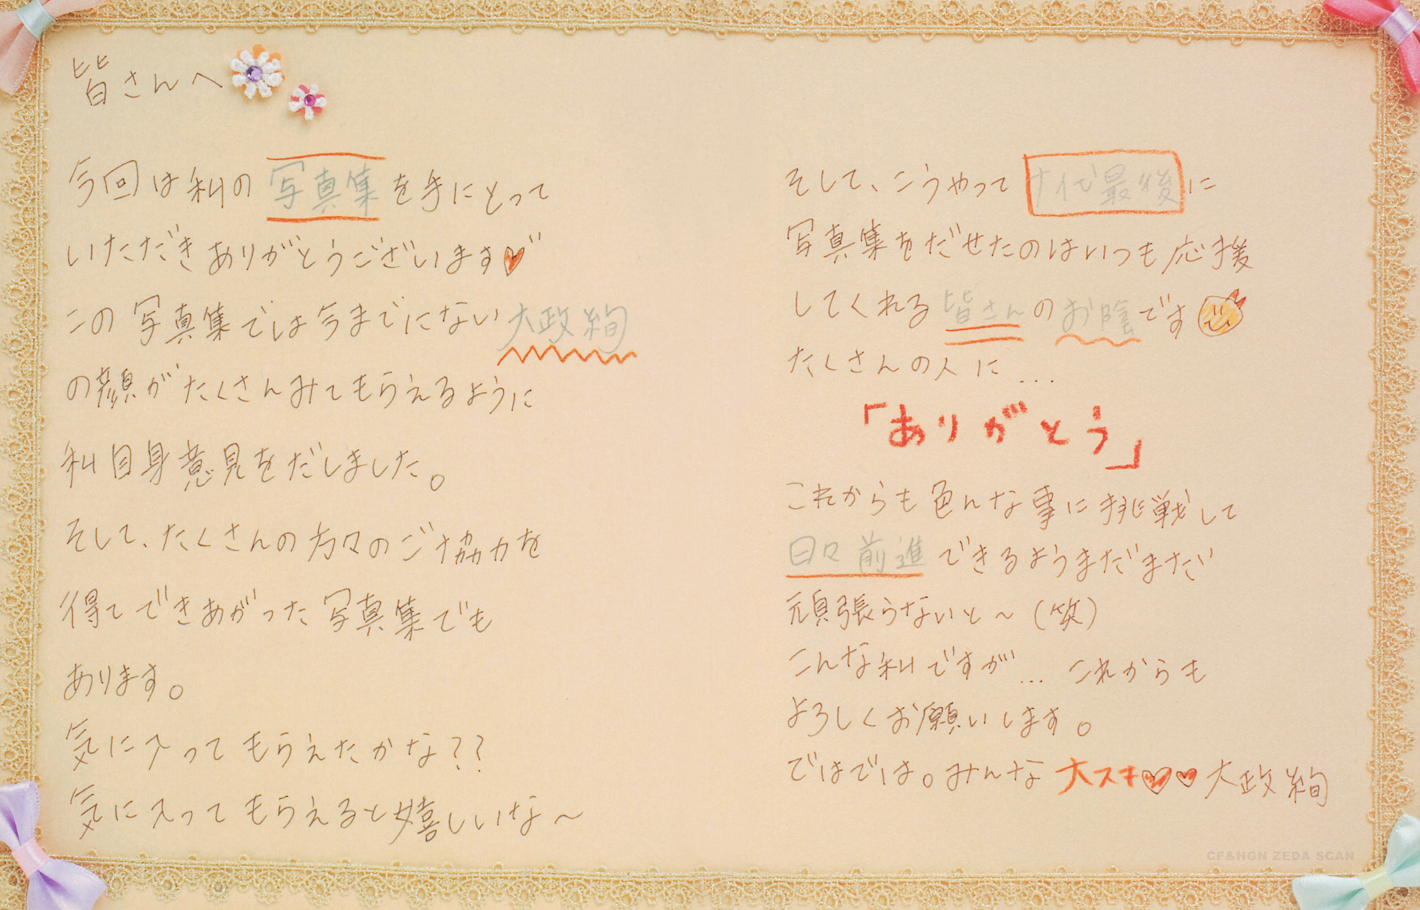 皆さんへ
今回は私の写真集を手にとって
いただきありがとうございます
この写真集では今までにない大政絢
の顔がたくさんみてもらえるように
私自身意見をだしました。
そして、たくさんの方々のご協力を
得てできあがった写真集でも
あります。
気に入ってもらえたかな??
気に入ってもらえると嬉しいな～
そして、こうやって十代最後に
写真集をだせたのはいつも応援
してくれる皆さんのお陰です
たくさんの人に…
「ありがとう」
これからも色んな事に挑戦して
日々前進できるようまだまだ
頑張らないと～(笑)
こんな私ですが…これからも
よろしくお願いします。
ではでは。みんな大スキ♡♡大政絢
CF&HGN ZEDA SCAN